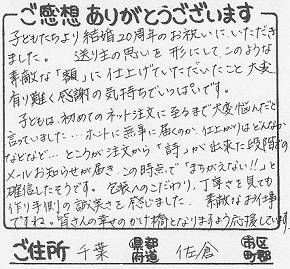 ご感想ありがとうございます
子どもたちより結婚20周年のお祝いにいただき
ました。 送り主の思いを形にして、このような
素敵な「額」に仕上げていただいたこと大変
有り難く感謝の気持ちでいっぱいです。
子どもは、初めてのネット注文に至るまで大変悩んだと
言っていました…ホントに無事に届くのか、仕上がりはどんなか
などなど…ところが注文から「詩」が出来た段階の
メールお知らせが届き、この時点で「まちがえない!!」と
確信したそうです。包装へのこだわり、丁寧さを見ても
作り手側の誠実さを感じました。 素敵なお仕事
ですね。皆さんの幸せのかけ橋となりますよう応援しています
ご住所 千葉 都道府県 佐倉 市区町郡